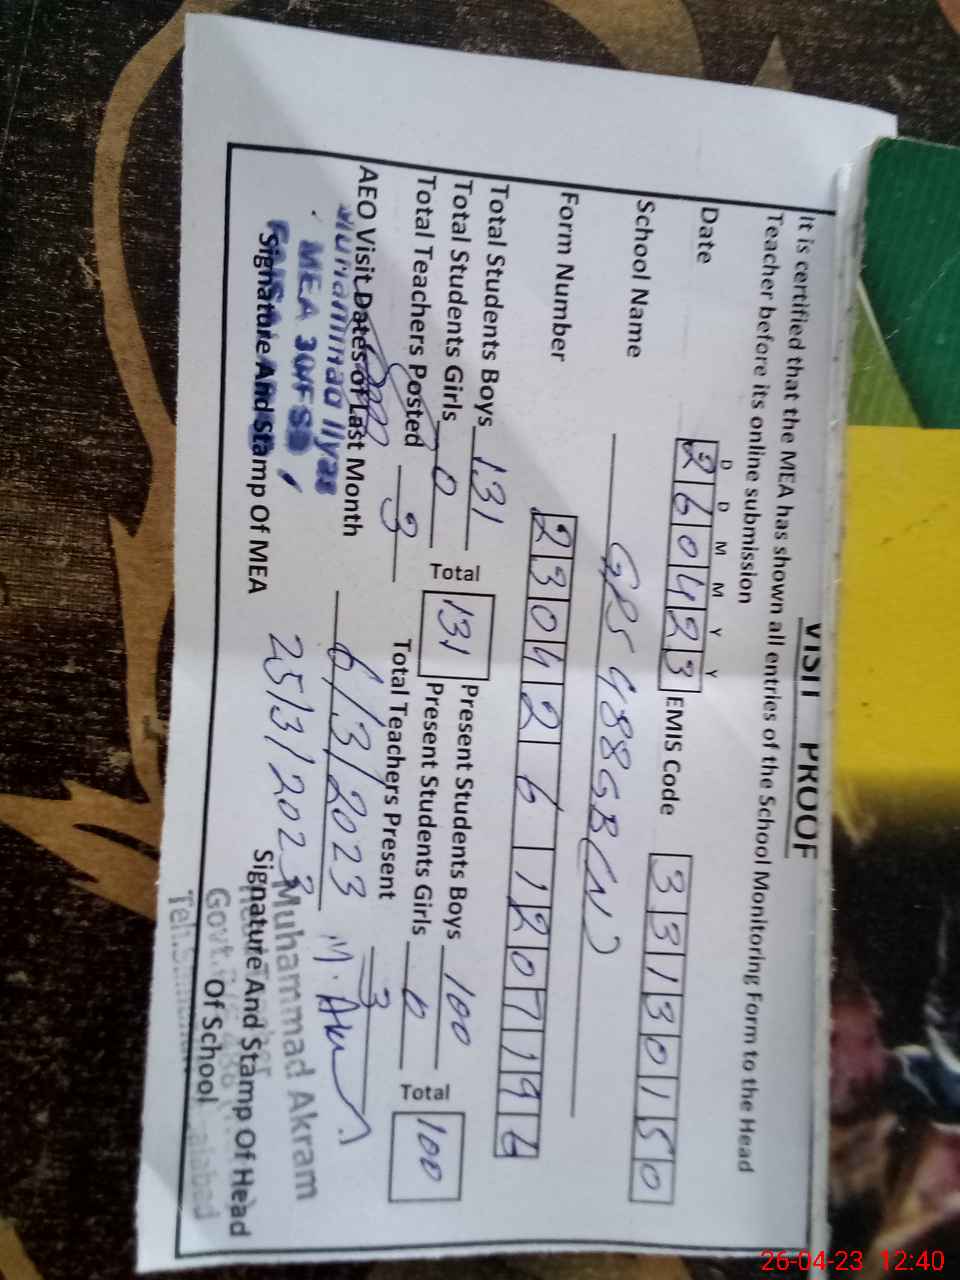 VISIT PROOF
It is certified that the MEA has shown all entries of the School Monitoring Form to the Head
Teacher before its online submission
D D M M Y Y
Date 260423 EMIS Code 33130150
School Name GPS 488GB(W)
Form Number 230426120719
Total Students Boys 131 Total 131 Present Students Boys 100 Total 100
Total Students Girls 0 Present Students Girls 0
Total Teachers Posted 3 Total Teachers Present 3
AEO Visit Dates of Last Month 6/3/2023
25/3/2023
M. Akram
Muhammad Ilyas
MEA 30/FSD
Signature And Stamp Of MEA
Muhammad Akram
Signature And Stamp Of Head
Of School
Govt.
26-04-23 12:40